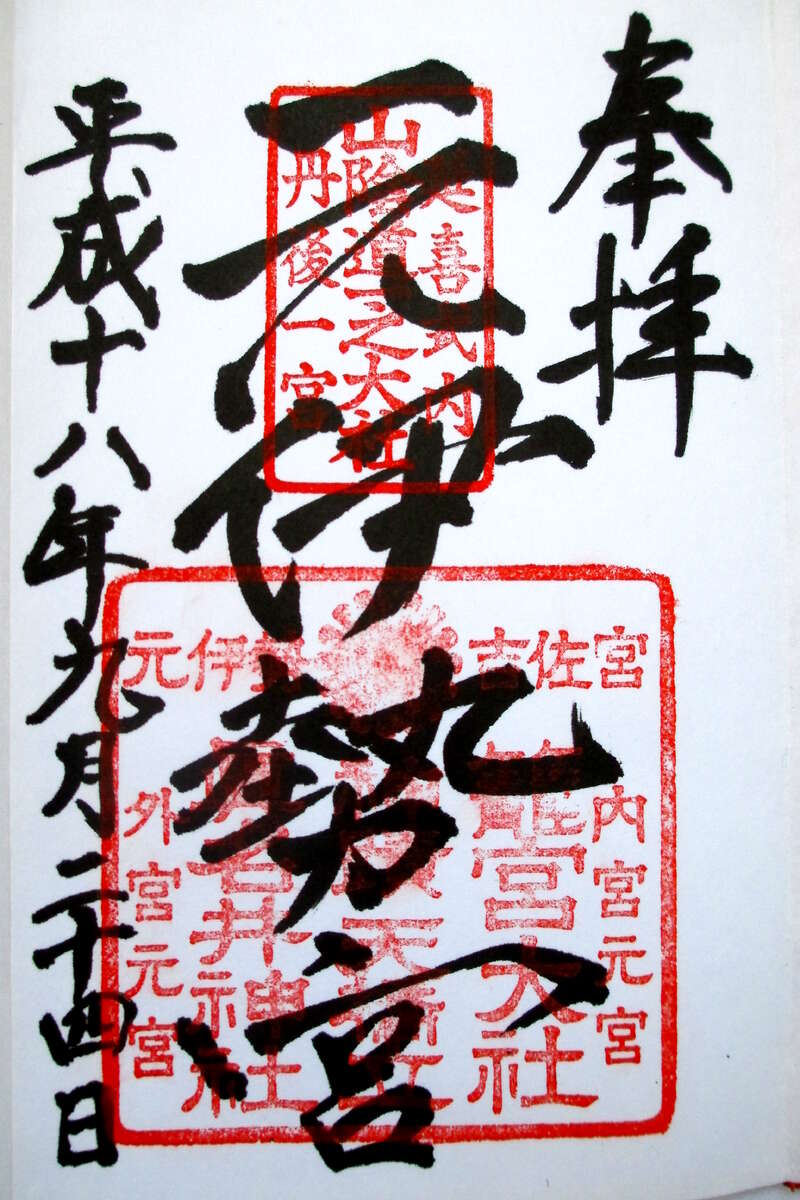 奉拝
元伊勢宮
平成十八年九月二十四日
延喜式内
山陰道一之大社
丹後一宮
元伊勢 吉佐宮
内宮元宮
籠宮大社
天橋立
眞名井神社
外宮元宮